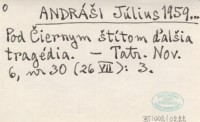 ANDRÁŠI Július 1959...
Pod Čiernym štítom ďalšia
tragédia. — Tatr. Nov.
6, nr. 30 (26 VII): 3.